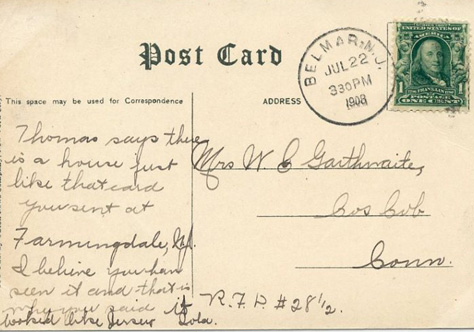 Post Card
This space may be used for Correspondence
ADDRESS
BELMAR, N.J.
JUL 22
330 PM
1908
UNITED STATES OF AMERICA
1 FRANKLIN 1
ONE CENT
Thomas says there
is a house just
like that card
you sent at
Farmingdale, N.J.
I believe you have
seen it and that is
why you said it
looked like Jersey
Lola.
Mrs W E Garthwaite,
Cos Cob
Conn.
R.F.D. #28 1/2.